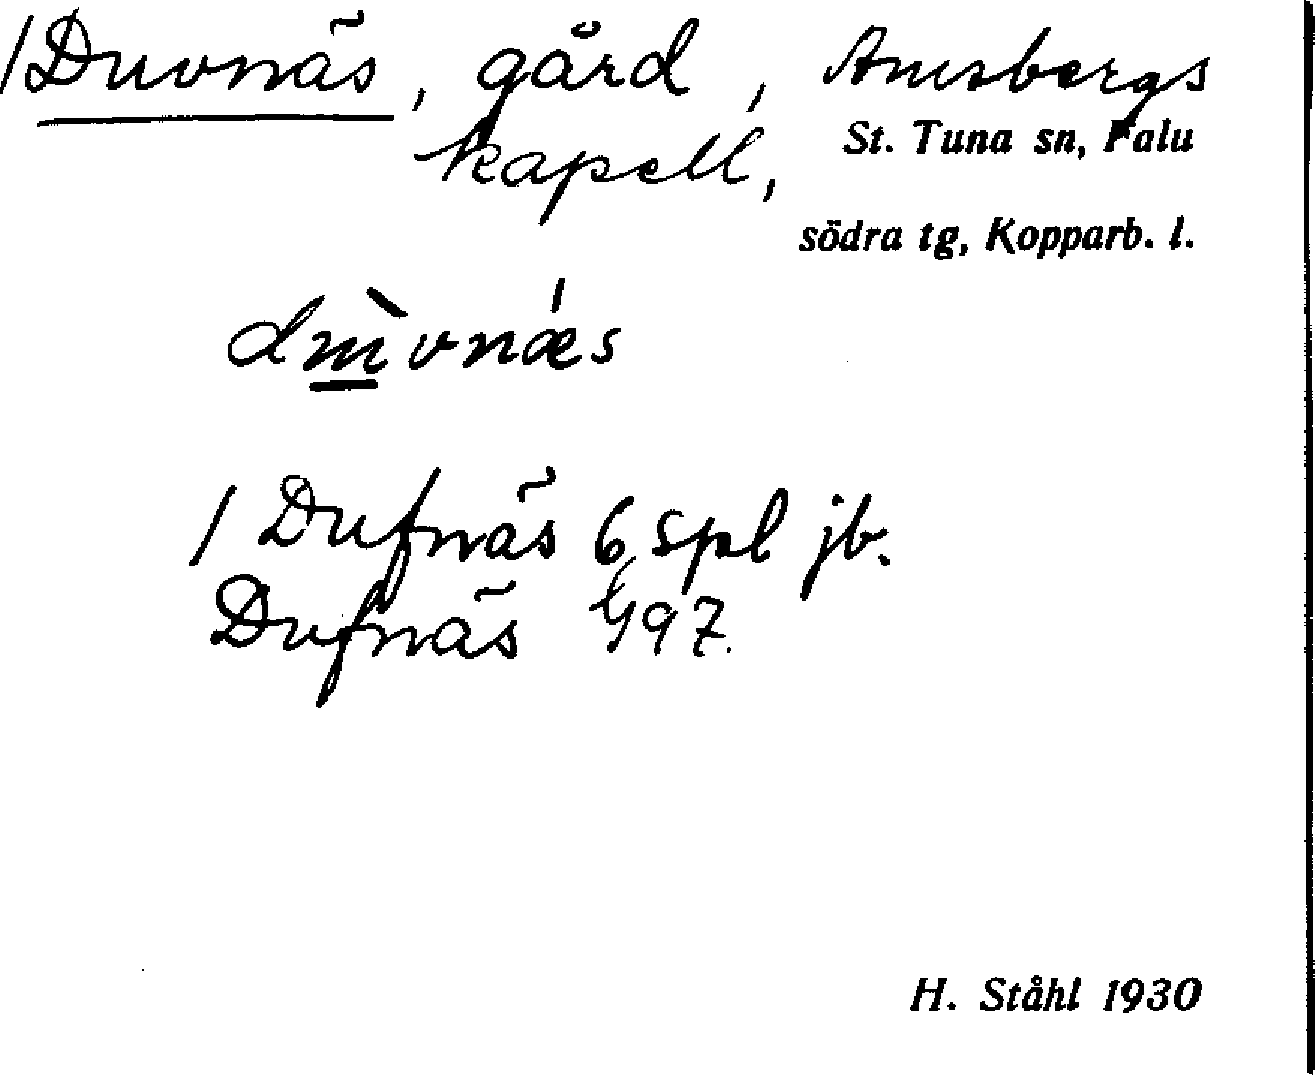 /Duvnäs, gård, Amsbergs
kapell, St. Tuna sn, Falu
södra tg, Kopparb. l.
dɯ̀vnǽs
/ Dufnäs 6 spl jb.
Dufnäs G97
H. Ståhl 1930